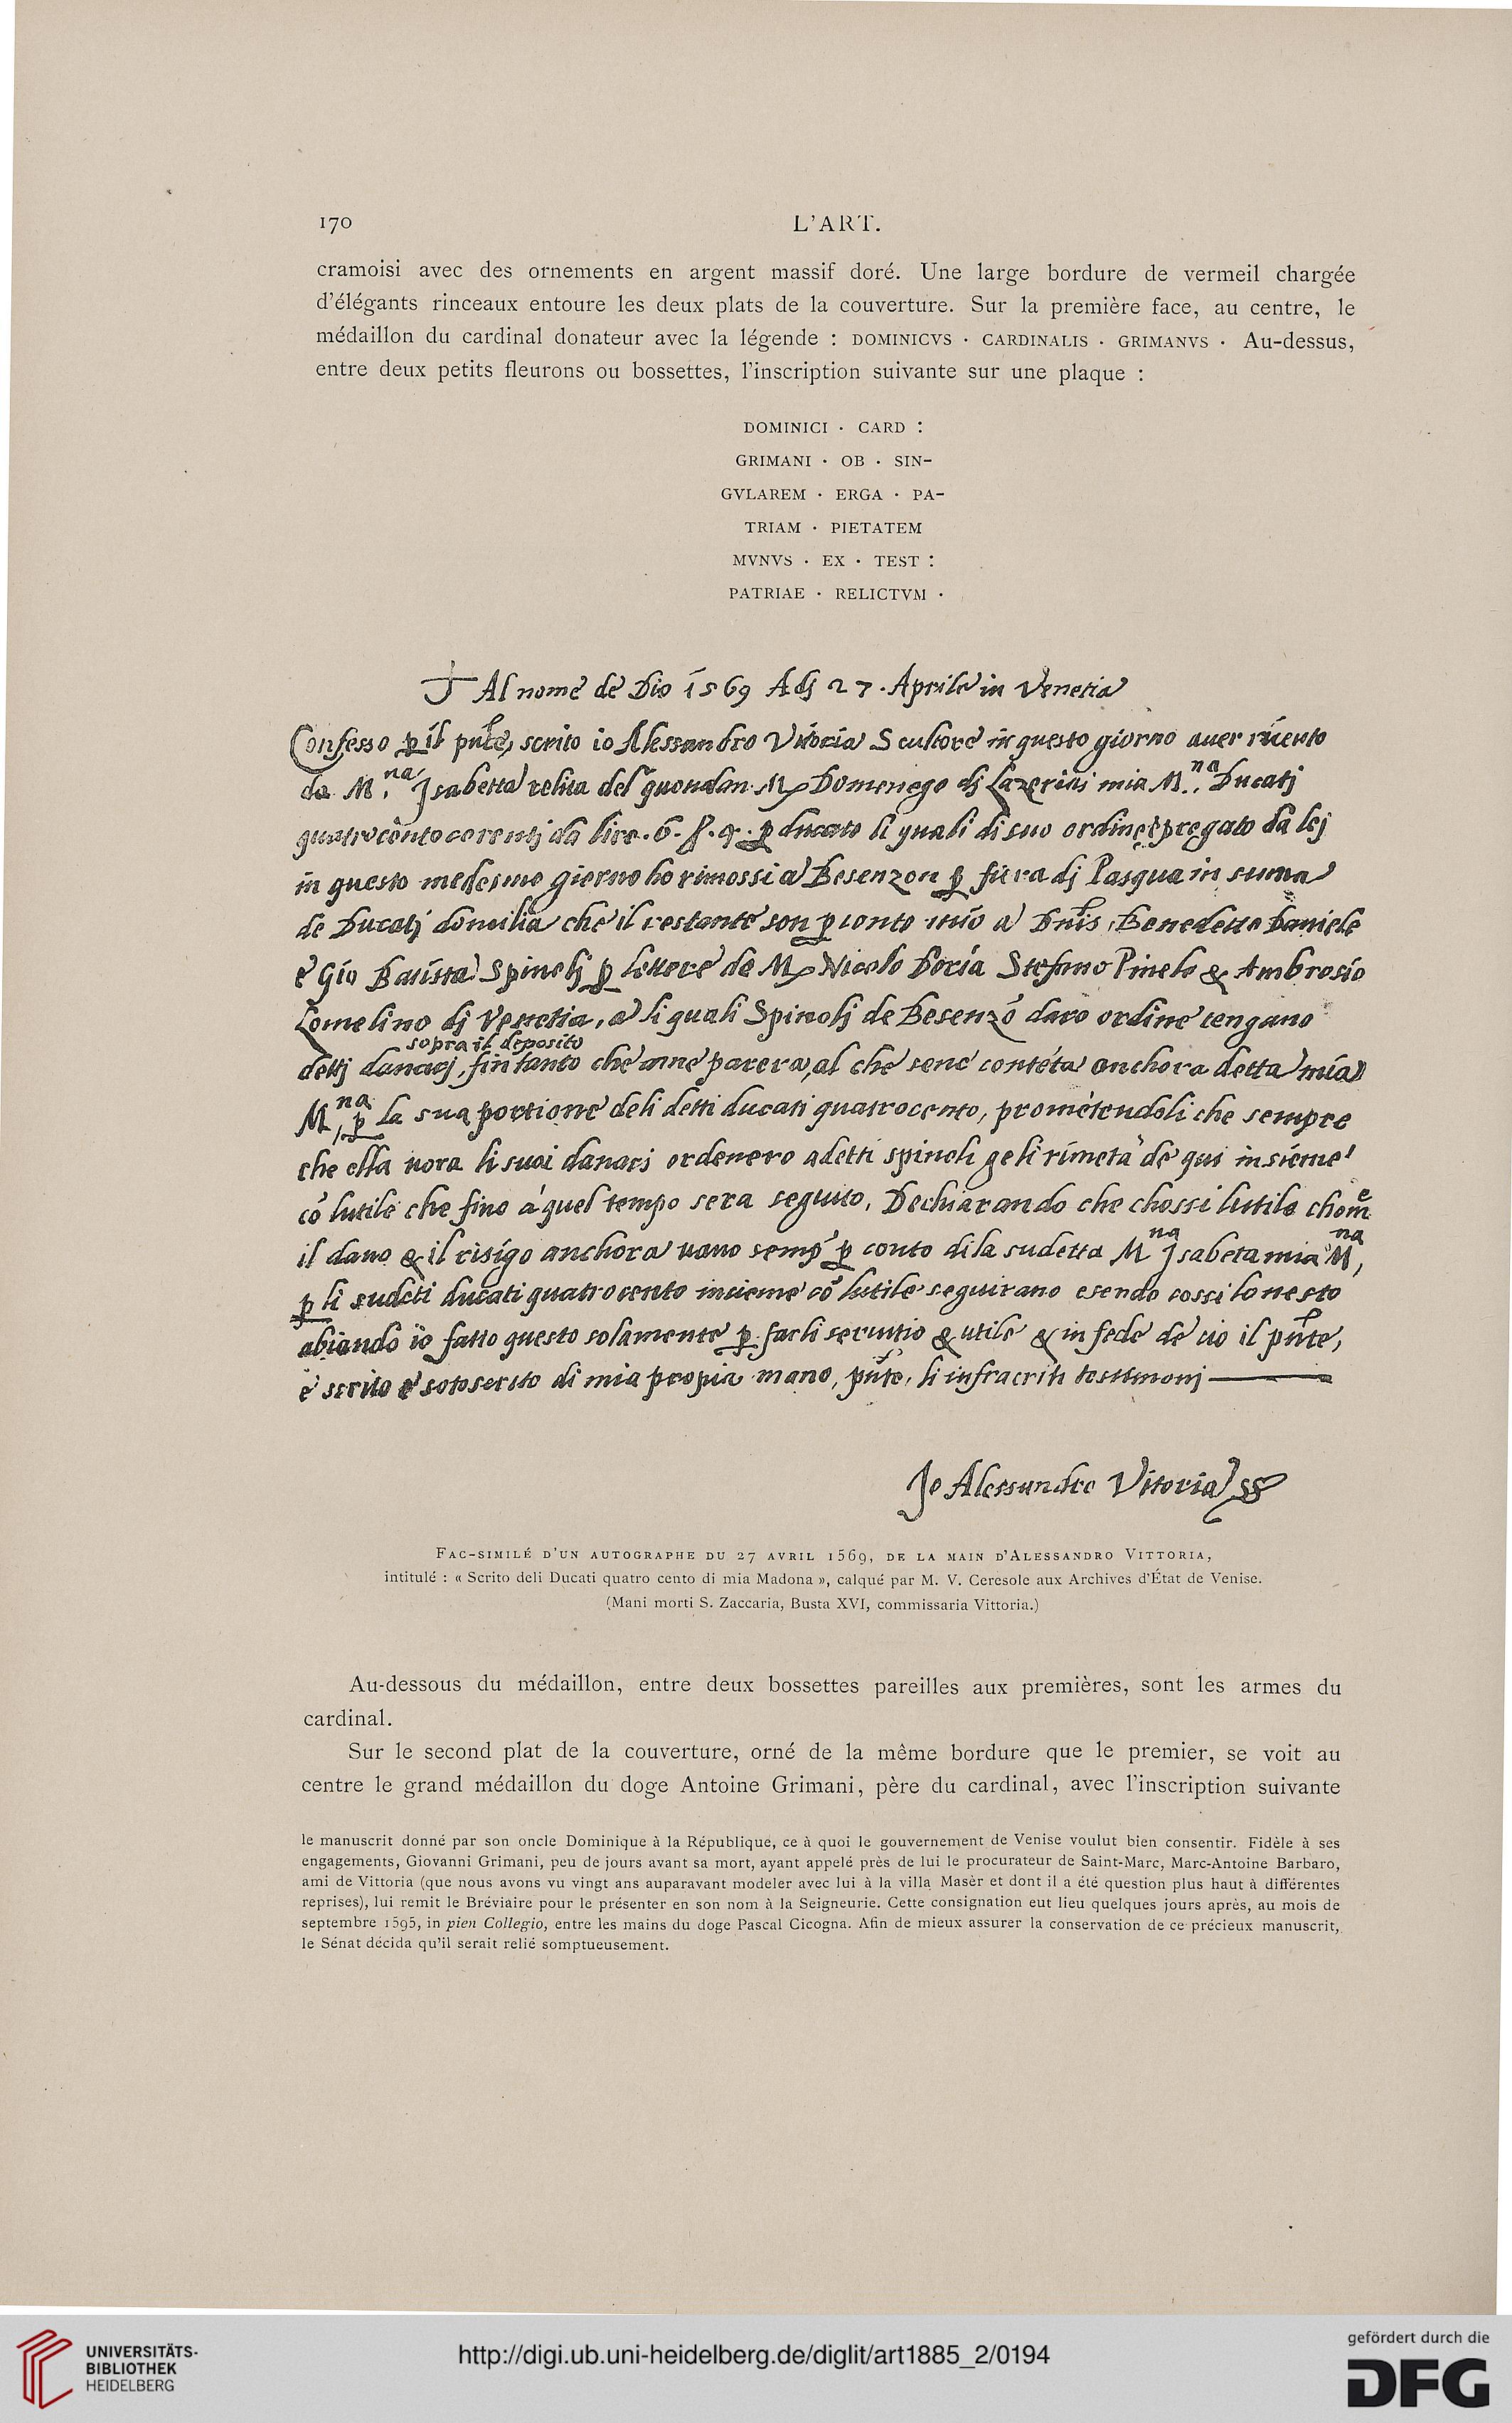 170
L'ART.
cramoisi avec des ornements en argent massif doré. Une large bordure de vermeil chargée
d'élégants rinceaux entoure les deux plats de la couverture. Sur la première face, au centre, le
médaillon du cardinal donateur avec la légende : DOMINICVS · CARDINALIS · GRIMANVS · Au-dessus,
entre deux petits fleurons ou bossettes, l'inscription suivante sur une plaque :
DOMINICI · CARD :
GRIMANI · OB · SIN-
GVLAREM · ERGA · PA-
TRIAM · PIETATEM
MVNVS · EX · TEST :
PATRIAE · RELICTVM ·
Al nome de Dio 1569 Adj 27 · Aprile in Venetia
Confesso p il pnte, scrito io Alessandro Vitoria Scultore in questo giorno auer
da M.na Isabetta relita del quondan Domenego dj mia M.na Ducatj
da lire · 6 · p ducato li quali di suo ordine pregato da lej
in questo medesmo giorno ho rimossi a Besenzon p fiera dj Pasqua in suma
de Ducatj che il restante son p conto mio a Benedetto Daniele
e Gio Batista Spinolj p lettere de Nicolo Doria Stefano Pinelo & Ambrosio
Lomelino dj Venetia, a li quali Spinolj de Besenzó daro ordine tengano
sopra il deposito
dettj danarj, fin tanto che ame parera, al che sene contéta anchora detta mia
M.na p la sua portione deli detti ducati quatrocento, prometendoli che sempre
che ella vora li suoi danarj ordenero a detti spinoli ge li rimeta de qui insieme
có lutile che fino a quel tempo sera seguito, Dechiarando che chossi lutile chome
il dano & il risigo anchora vano semp p conto di la sudetta M.na Isabeta mia M.na,
p li sudeti ducati quatrocento insieme có lutile seguirano esendo cossi lonesto
abiando io fatto questo solamente p farli seruitio & utile & in fede de cio il pnte,
e scrito e sotoscrito di mia propia mano, pnte, li infracriti testimonj
Io Alessandro Vitoria ss
FAC-SIMILÉ D'UN AUTOGRAPHE DU 27 AVRIL 1569, DE LA MAIN D'ALESSANDRO VITTORIA,
intitulé : « Scrito deli Ducati quatro cento di mia Madona », calqué par M. V. Ceresole aux Archives d'État de Venise.
(Mani morti S. Zaccaria, Busta XVI, commissaria Vittoria.)
Au-dessous du médaillon, entre deux bossettes pareilles aux premières, sont les armes du
cardinal.
Sur le second plat de la couverture, orné de la même bordure que le premier, se voit au
centre le grand médaillon du doge Antoine Grimani, père du cardinal, avec l'inscription suivante
le manuscrit donné par son oncle Dominique à la République, ce à quoi le gouvernement de Venise voulut bien consentir. Fidèle à ses
engagements, Giovanni Grimani, peu de jours avant sa mort, ayant appelé près de lui le procurateur de Saint-Marc, Marc-Antoine Barbaro,
ami de Vittoria (que nous avons vu vingt ans auparavant modeler avec lui à la villa Masèr et dont il a été question plus haut à différentes
reprises), lui remit le Bréviaire pour le présenter en son nom à la Seigneurie. Cette consignation eut lieu quelques jours après, au mois de
septembre 1595, in pien Collegio, entre les mains du doge Pascal Cicogna. Afin de mieux assurer la conservation de ce précieux manuscrit,
le Sénat décida qu'il serait relié somptueusement.
UNIVERSITÄTS-
BIBLIOTHEK
HEIDELBERG
http://digi.ub.uni-heidelberg.de/diglit/art1885_2/0194
gefördert durch die
DFG